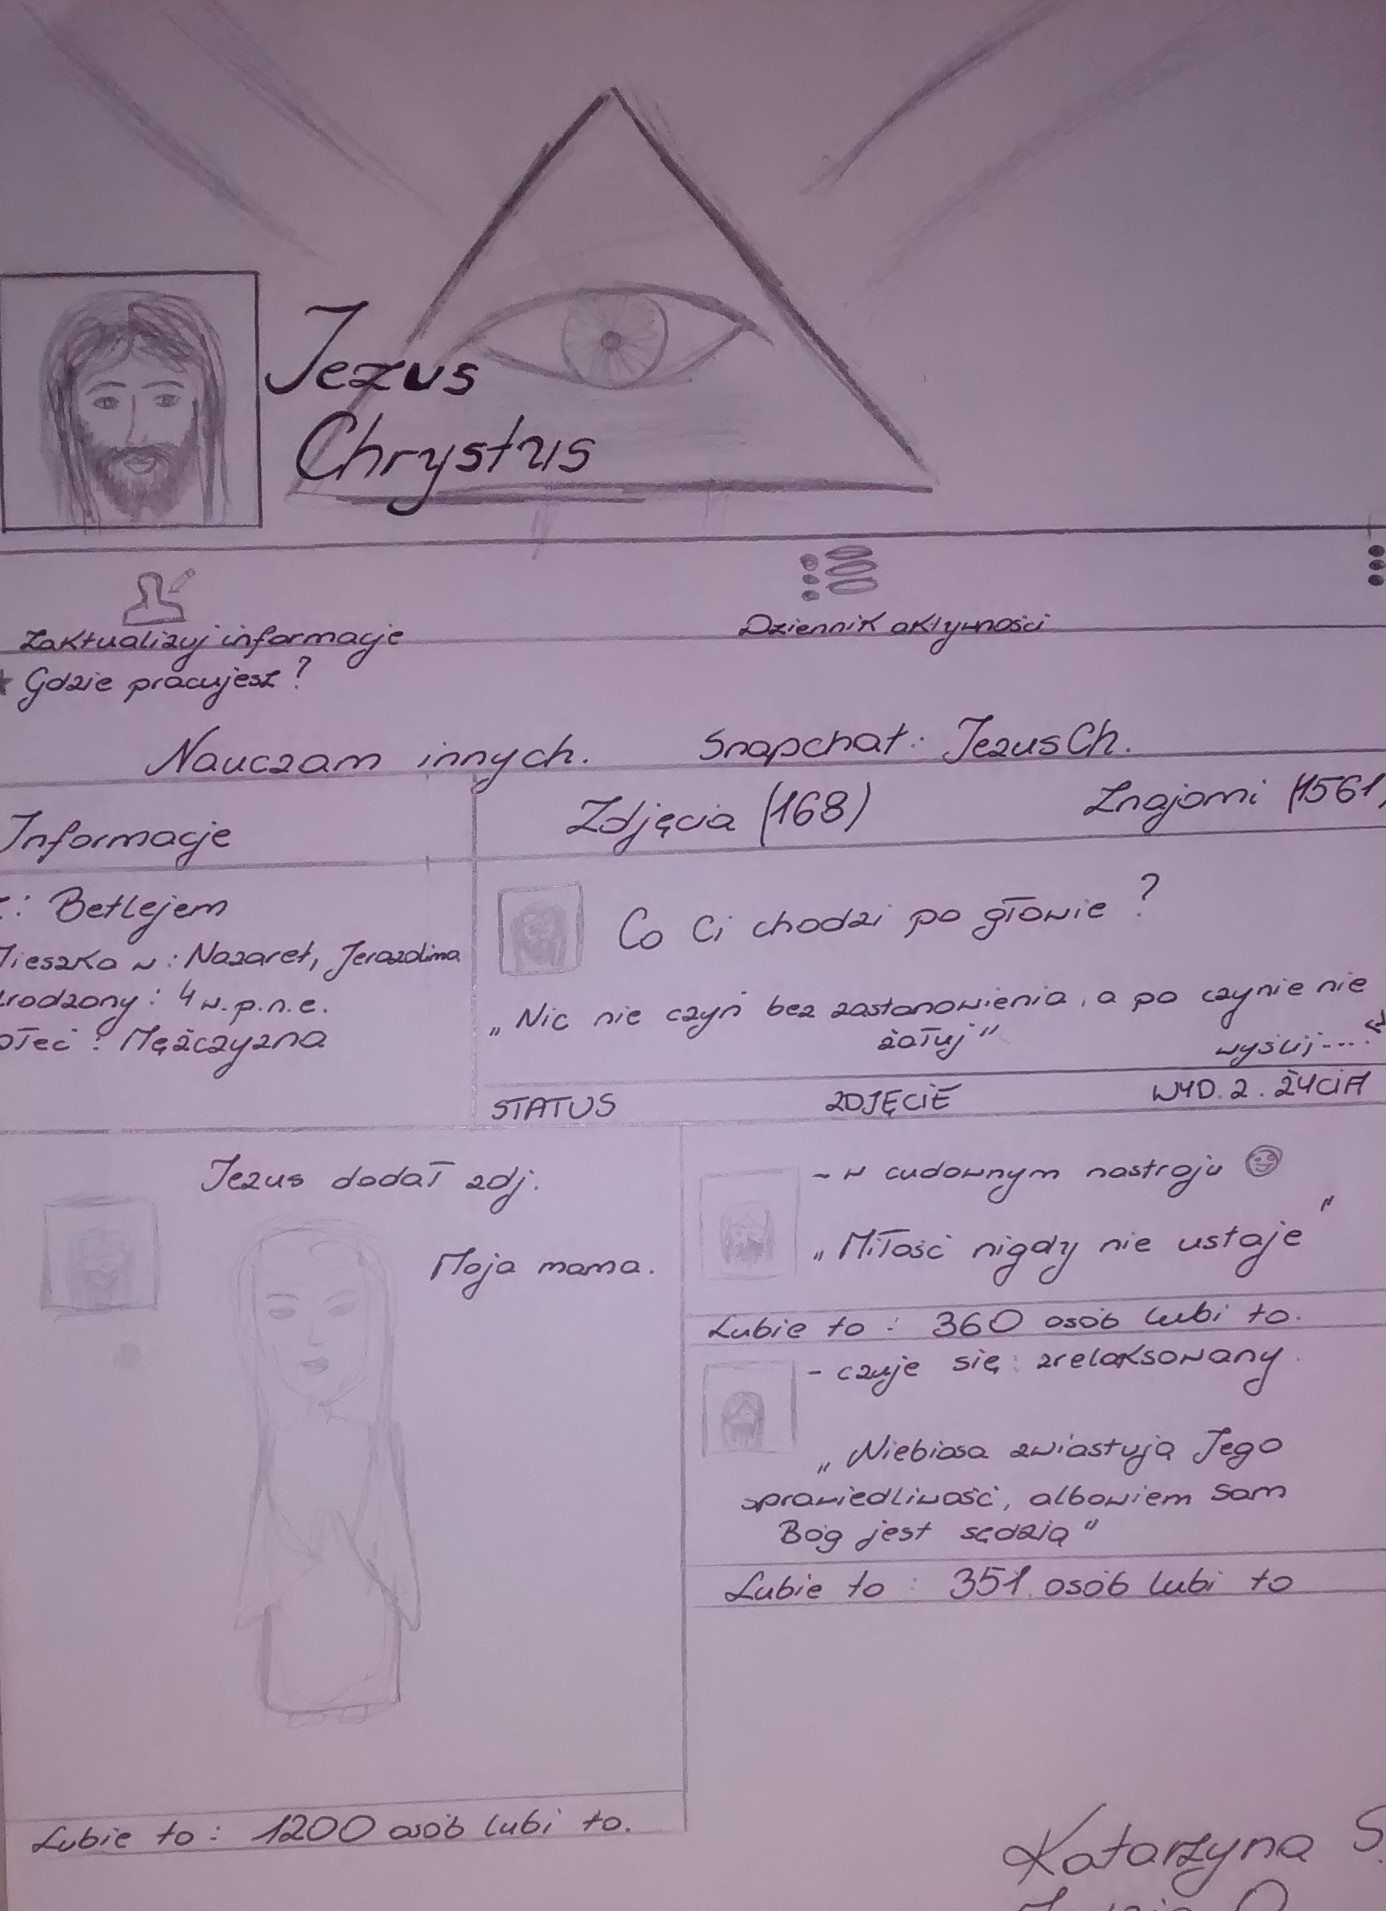 Jezus
Chrystus
Zaktualizuj informacje
Dziennik aktywności
Gdzie pracujesz?
Nauczam innych. Snapchat: JezusCh.
Informacje
Zdjęcia (168)
Znajomi (1561)
z: Betlejem
Mieszka w: Nazaret, Jerozolima
Urodzony: 4 w.p.n.e.
płeć: Mężczyzna
Co Ci chodzi po głowie?
„Nic nie czyń bez zastanowienia, a po czynie nie
żałuj”
wyślij....
STATUS ZDJĘCIE WYD. Z. ŻYCIA
Jezus dodał zdj.
Moja mama.
Lubie to: 1200 osób lubi to.
- w cudownym nastroju
„Miłość nigdy nie ustaje”
Lubie to: 360 osób lubi to.
- czuje się: zrelaksowany.
„Niebiosa zwiastują Jego
sprawiedliwość, albowiem sam
Bóg jest sędzią”
Lubie to: 351 osób lubi to
Katarzyna S.